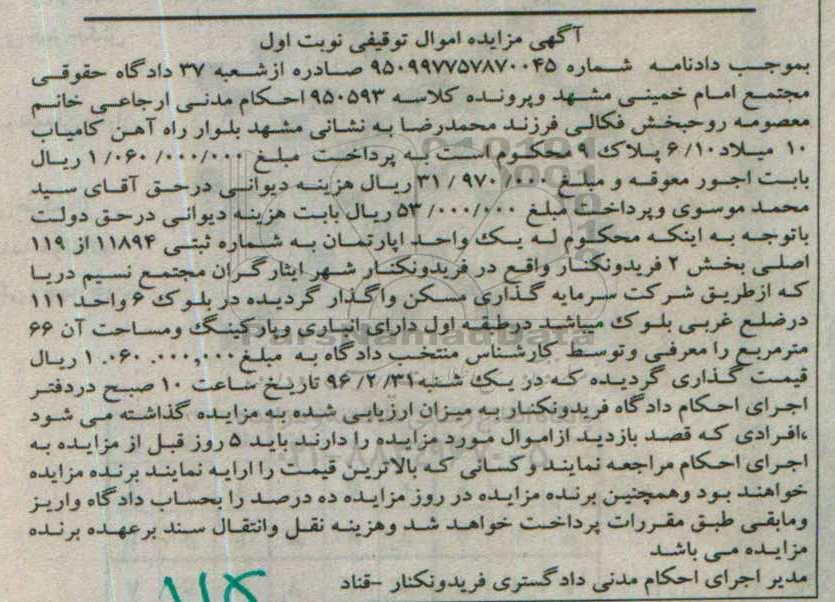 آگهی مزایده اموال توقیفی نوبت اول
بموجب دادنامه شماره ۹۵۰۹۹۷۷۵۷۸۷۰۰۰۴۵ صادره ازشعبه ۳۷ دادگاه حقوقی
مجتمع امام خمینی مشهد وپرونده کلاسه ۹۵۰۵۹۳ احکام مدنی ارجاعی خانم
معصومه روحبخش فکالی فرزند محمدرضا به نشانی مشهد بلوار راه آهن کامیاب
۱۰ میلاد۶/۱۰ پلاک ۹ محکوم است به پرداخت مبلغ ۱/۰۶۰/۰۰۰/۰۰۰ ریال
بابت اجور معوقه و مبلغ ۳۱/۹۷۰/۰۰۰ ریال هزینه دیوانی درحق آقای سید
محمد موسوی وپرداخت مبلغ ۵۳/۰۰۰/۰۰۰ ریال بابت هزینه دیوانی درحق دولت
باتوجه به اینکه محکوم له یک واحد اپارتمان به شماره ثبتی ۱۱۸۹۴ از ۱۱۹
اصلی بخش ۲ فریدونکنار واقع در فریدونکنار شهر ایثارگران مجتمع نسیم دریا
که ازطریق شرکت سرمایه گذاری مسکن واگذار گردیده در بلوک ۶ واحد ۱۱۱
درضلع غربی بلوک میباشد درطبقه اول دارای انباری وپارکینگ ومساحت آن ۶۶
مترمربع را معرفی وتوسط کارشناس منتخب دادگاه به مبلغ ۱.۰۶۰.۰۰۰,۰۰۰ ریال
قیمت گذاری گردیده که در یک شنبه ۹۶/۲/۳۱ تاریخ ساعت ۱۰ صبح دردفتر
اجرای احکام دادگاه فریدونکنار به میزان ارزیابی شده به مزایده گذاشته می شود
،افرادی که قصد بازدید ازاموال مورد مزایده را دارند باید ۵ روز قبل از مزایده به
اجرای احکام مراجعه نمایند وکسانی که بالاترین قیمت را ارایه نمایند برنده مزایده
خواهند بود وهمچنین برنده مزایده در روز مزایده ده درصد را بحساب دادگاه واریز
ومابقی طبق مقررات پرداخت خواهد شد وهزینه نقل وانتقال سند برعهده برنده
مزایده می باشد
مدیر اجرای احکام مدنی دادگستری فریدونکنار -قناد
ParsNamadData